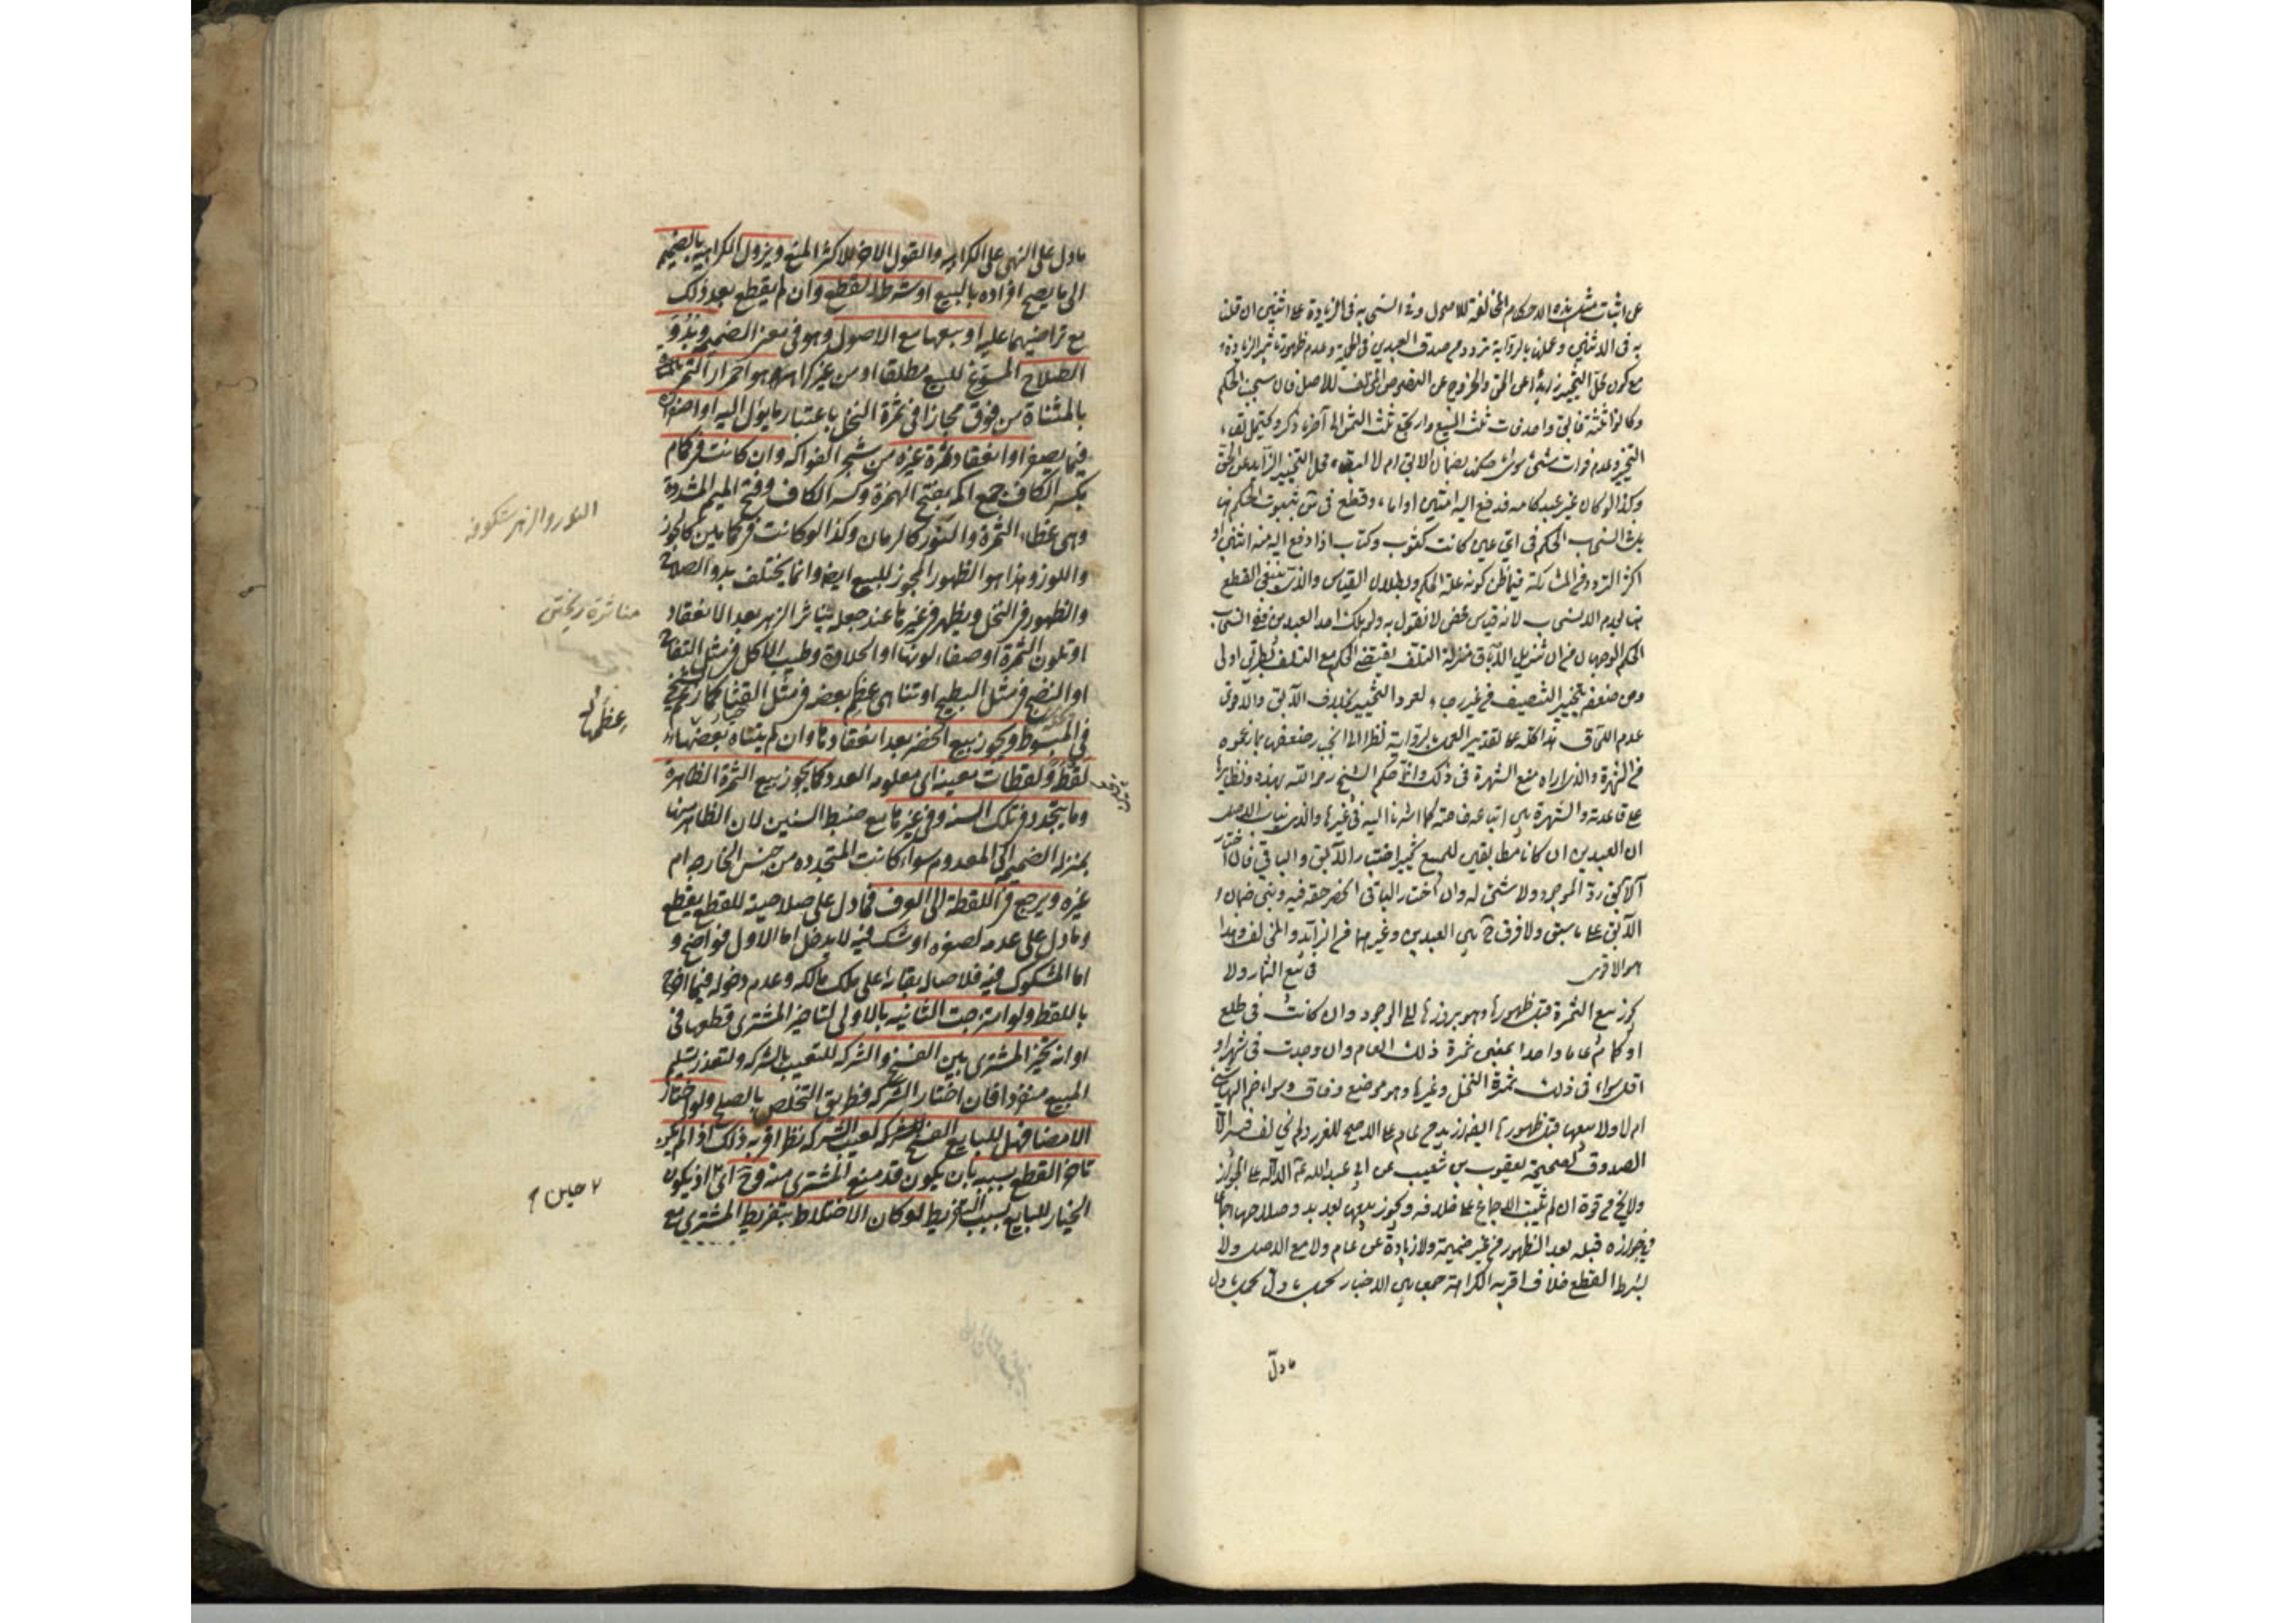 على اثبات مثل هذه الاحكام المخالفة للاصول وفي انسحابه في الزيادة على اثنين ان قلنا
به في الاثنين وعملنا بالرواية تردد من صدق العبدين في الجملة وعدم ظهور تاثير الزيادة
مع كون محل التخيير زايدا عن الحق والخروج عن المنصوص المخالف للاصل فان سحبنا الحكم
وكانوا ثلثة فابق واحد فات ثلث المبيع وارتجع ثلث الثمن الى آخر ما ذكر ويحتمل بقاء
التخيير وعدم فوات شئ سواء حكمنا بضمان الابق ام لا لبقاء محل التخيير الزايد عن الحق
وكذا لو كان غير عبد كامة فدفع اليه امتين او اماء وقطع في س بثبوت الحكم هنا
اكثر التردد من المشاركة فيما ظن كونه علة الحكم وبطلان القياس والذي ينبغي القطع
هنا بعدم الانسحاب لانه قياس محض لا نقول به ولو هلك احد العبدين ففي انسحاب
الحكم الوجهان من ان تنزيل الاباق منزلة التلف يقتضي الحكم مع التلف بطريق اولى
ومن ضعفه بتخيير التنصيف من غير رجاء لعود التخيير بخلاف الآبق والاقوى
عدم اللحاق هذا كله على تقدير العمل بالرواية نظرا الى انجبار ضعفها بما زعموه
من الشهرة والذي اراه منع الشهرة في ذلك وانما حكم الشيخ رحمه الله بهذه ونظايرها
على قاعدته والشهرة بين اتباعه خاصة كما اشرنا اليه في غيرها والذي يناسب الاصل
ان العبدين ان كانا مطابقين للمبيع تخير بين اختيار الآبق والباقي فان اختار
الآبق رد الموجود ولا شئ له وان اختار الباقي انحصر حقه فيه وبنى ضمان
الآبق على ما سبق ولا فرق ح بين العبدين وغيرهما من الزائد والمخالف وهذا
هو الاقوى في بيع الثمار ولا
يجوز بيع الثمرة قبل ظهورها وهو بروزها الى الوجود وان كانت في طلع
او كمام عاما واحدا بمعنى ثمرة ذلك العام وان وجدت في شهر او
اقل سواء في ذلك ثمرة النخل وغيرها وهو موضع وفاق وسواء ضم اليها شيئا
ام لا ولا بيعها قبل ظهورها ايضا ازيد من عام على الاصح للغرر ولم يخالف فيه الا
الصدوق لصحيحة يعقوب بن شعيب عن ابي عبد الله ع الدالة على الجواز
ولا يخ من قوة ان لم يثبت الاجماع على خلافه ويجوز بيعها بعد بدو صلاحها اجماعا
وفي جوازه قبله بعد الظهور من غير ضميمة ولا زيادة عن عام ولا مع الاصل ولا
بشرط القطع خلاف اقربه الكراهة جمعا بين الاخبار بحمل ما دل
ما دل
ما دل على النهي على الكراهة والقول الاخر للاكثر المنع ويزول الكراهية بالضميمة
الى ما يصح افراده بالبيع او شرط القطع وان لم يقطع بعد ذلك
مع تراضيهما عليه او بيعها مع الاصول وهو في معنى الضميمة وبدو
الصلاح المسوغ للبيع مطلقا او من غير كراهة هو احمرار التمر
بالمثناة من فوق مجازا في ثمرة النخل باعتبار ما يؤل اليه او اصفراره
فيما يصفر او انعقاد ثمرة غيره من شجر الفواكه وان كانت في كمام
بكسر الكاف جمع اكمه بفتح الهمزة وكسر الكاف وفتح الميم المشددة
وهي غطاء الثمرة والنور كالرمان وكذا لو كانت في كمامين كالجوز
واللوز وهذا هو الظهور المجوز للبيع ايضا وانما يختلف بدو الصلاح
والظهور في النخل ويظهر في غيرها عند جعله تناثر الزهر بعد الانعقاد
او تلون الثمرة او صفاء لونها او الحلاوة وطيب الاكل في مثل التفاح
او النضج في مثل البطيخ او تناهى عظم بعضه في مثل القثاء كما زعمه الشيخ
في المبسوط ويجوز بيع الخضر بعد انعقادها وان لم يتناه عظمها
لقطة ولقطات معينة اي معلومة العدد كما يجوز بيع الثمرة الظاهرة
وما يتجدد في تلك السنة وفي غيرها مع ضبط السنين لان الظاهر منها
بمنزلة الضميمة الى المعدوم سواء كانت المتجددة من جنس الخارجة ام
غيره ويرجع في اللقطة الى العرف فما دل على صلاحيته للقطع يقطع
وما دل على عدمه لصغره او شك فيه لا يدخل اما الاول فواضح و
اما المشكوك فيه فلاصالة بقاءه على ملك مالكه وعدم دخوله فيما اخرج
باللقط ولو امتزجت الثانية بالاولى لتاخير المشتري قطعها في
اوانه تخير المشتري بين الفسخ والشركة للتعيب بالشركة ولتعذر تسليم
المبيع منفردا فان اختار الشركة فطريق التخلص بالصلح ولو اختار
الامضا فهل للبايع الفسخ لعيب الشركة نظر اقربه ذلك اذا لم يكن
تاخر القطع بسببه بان يكون قد منع المشتري منه وح اي اذ يكون
الخيار للبايع بسبب التفريط لو كان الاختلاط بتفريط المشتري مع
النور والزهر شكوفه
متناثرة ريختن
عظمها
حين